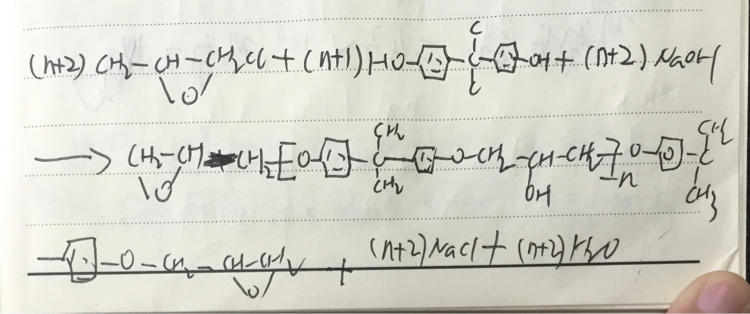 (n+2) CH2-CH-CH2Cl + (n+1) HO-⌬-C-⌬-OH + (n+2) NaOH
\O/ C C
→ CH2-CH-CH2-[O-⌬-C-⌬-O-CH2-CH-CH2]-n O-⌬-C
\O/ CH3 CH3 OH CH3 CH3
-⌬-O-CH2-CH-CH2 + (n+2)NaCl + (n+2)H2O
\O/